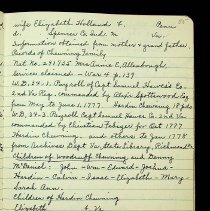 wife Elizabeth Holland b. Penn
d. Spencer Co. Ind. m. Va.
Information obtained from mother & grand father.
Records of Chewning Family
Nat. No. 291725 Mrs Annie E. Allenbough
Services claimed - War 4 p. 139
W.D. 24-1. Payroll of Capt Samuel Hawes Co.
2nd Va. Regt. commanded by Alex. Spottswood Esq
from May to June 1, 1777. Hardin Chewning 18 pds
W.D. 24-3 Payroll Capt Samuel Hawes Co. 2nd Va.
commanded by Christian Febiger for Oct 1777
Hardin Chewning and others to Jan 1778
from Archives Dept Va State Library, Richmond Va
Children of Woodruff Chewning and Penny
McDaniel - John - Ann - Edward - Joshua -
Hardin - Calvin - Isaac - Elizabeth - Mary -
Sarah Ann.
Children of Hardin Chewning
Elizabeth b. Va